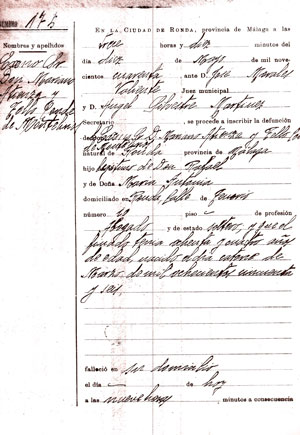 NUMERO 175
Nombres y apellidos
Excmo Sr
Don Mariano
Atienza y
Tello Conde
de Montelirios
EN LA CIUDAD DE RONDA, provincia de Málaga a las
once horas y diez minutos del
diez de Mayo de mil nove-
cientos cuarenta ante D. José Morales
Juez municipal
y D. Angel Martinez
Secretario se procede a inscribir la defunción
de D. Mariano Atienza y Tello
natural de Ronda provincia de Malaga
hijo legitimo de Don Rafael
y de Doña Maria Antonia
domiciliado en Ronda calle de
número piso de profesión
y de estado soltero, y que el
finado tenia ochenta y cuatro años
de edad, nacido el dia catorce de
Marzo de mil ochocientos cincuenta
y seis,
falleció en su domicilio
el día de hoy
a las nueve horas minutos a consecuencia